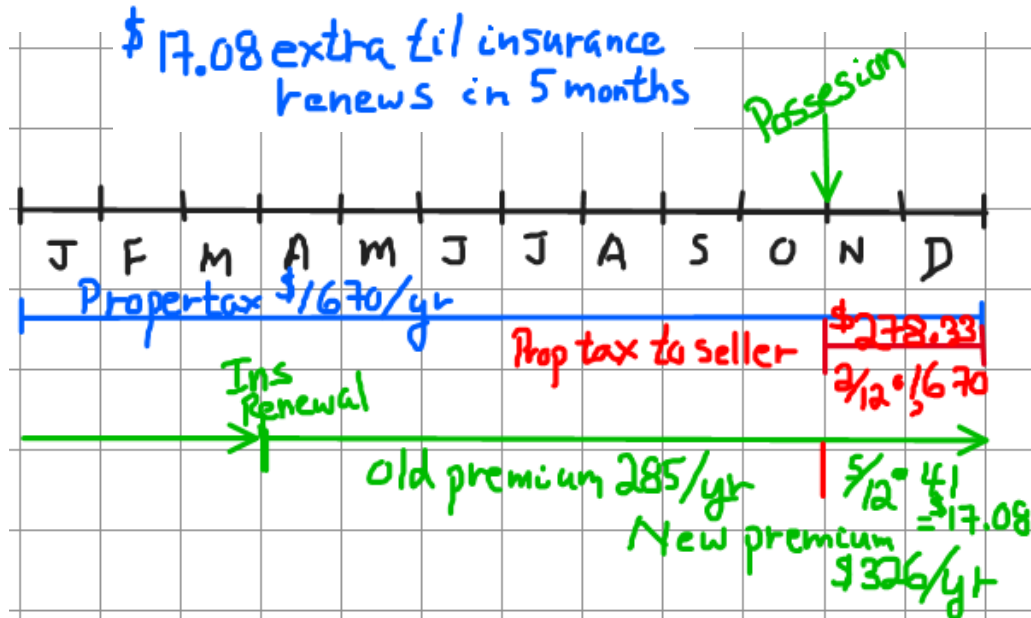 $17.08 extra til insurance
renews in 5 months
Possesion
J F M A M J J A S O N D
Propertax $1670/yr
$278.33
Prop tax to seller
2/12 • 1,670
Ins
Renewal
Old premium 285/yr
5/12 • 41
= $17.08
New premium
$326/yr